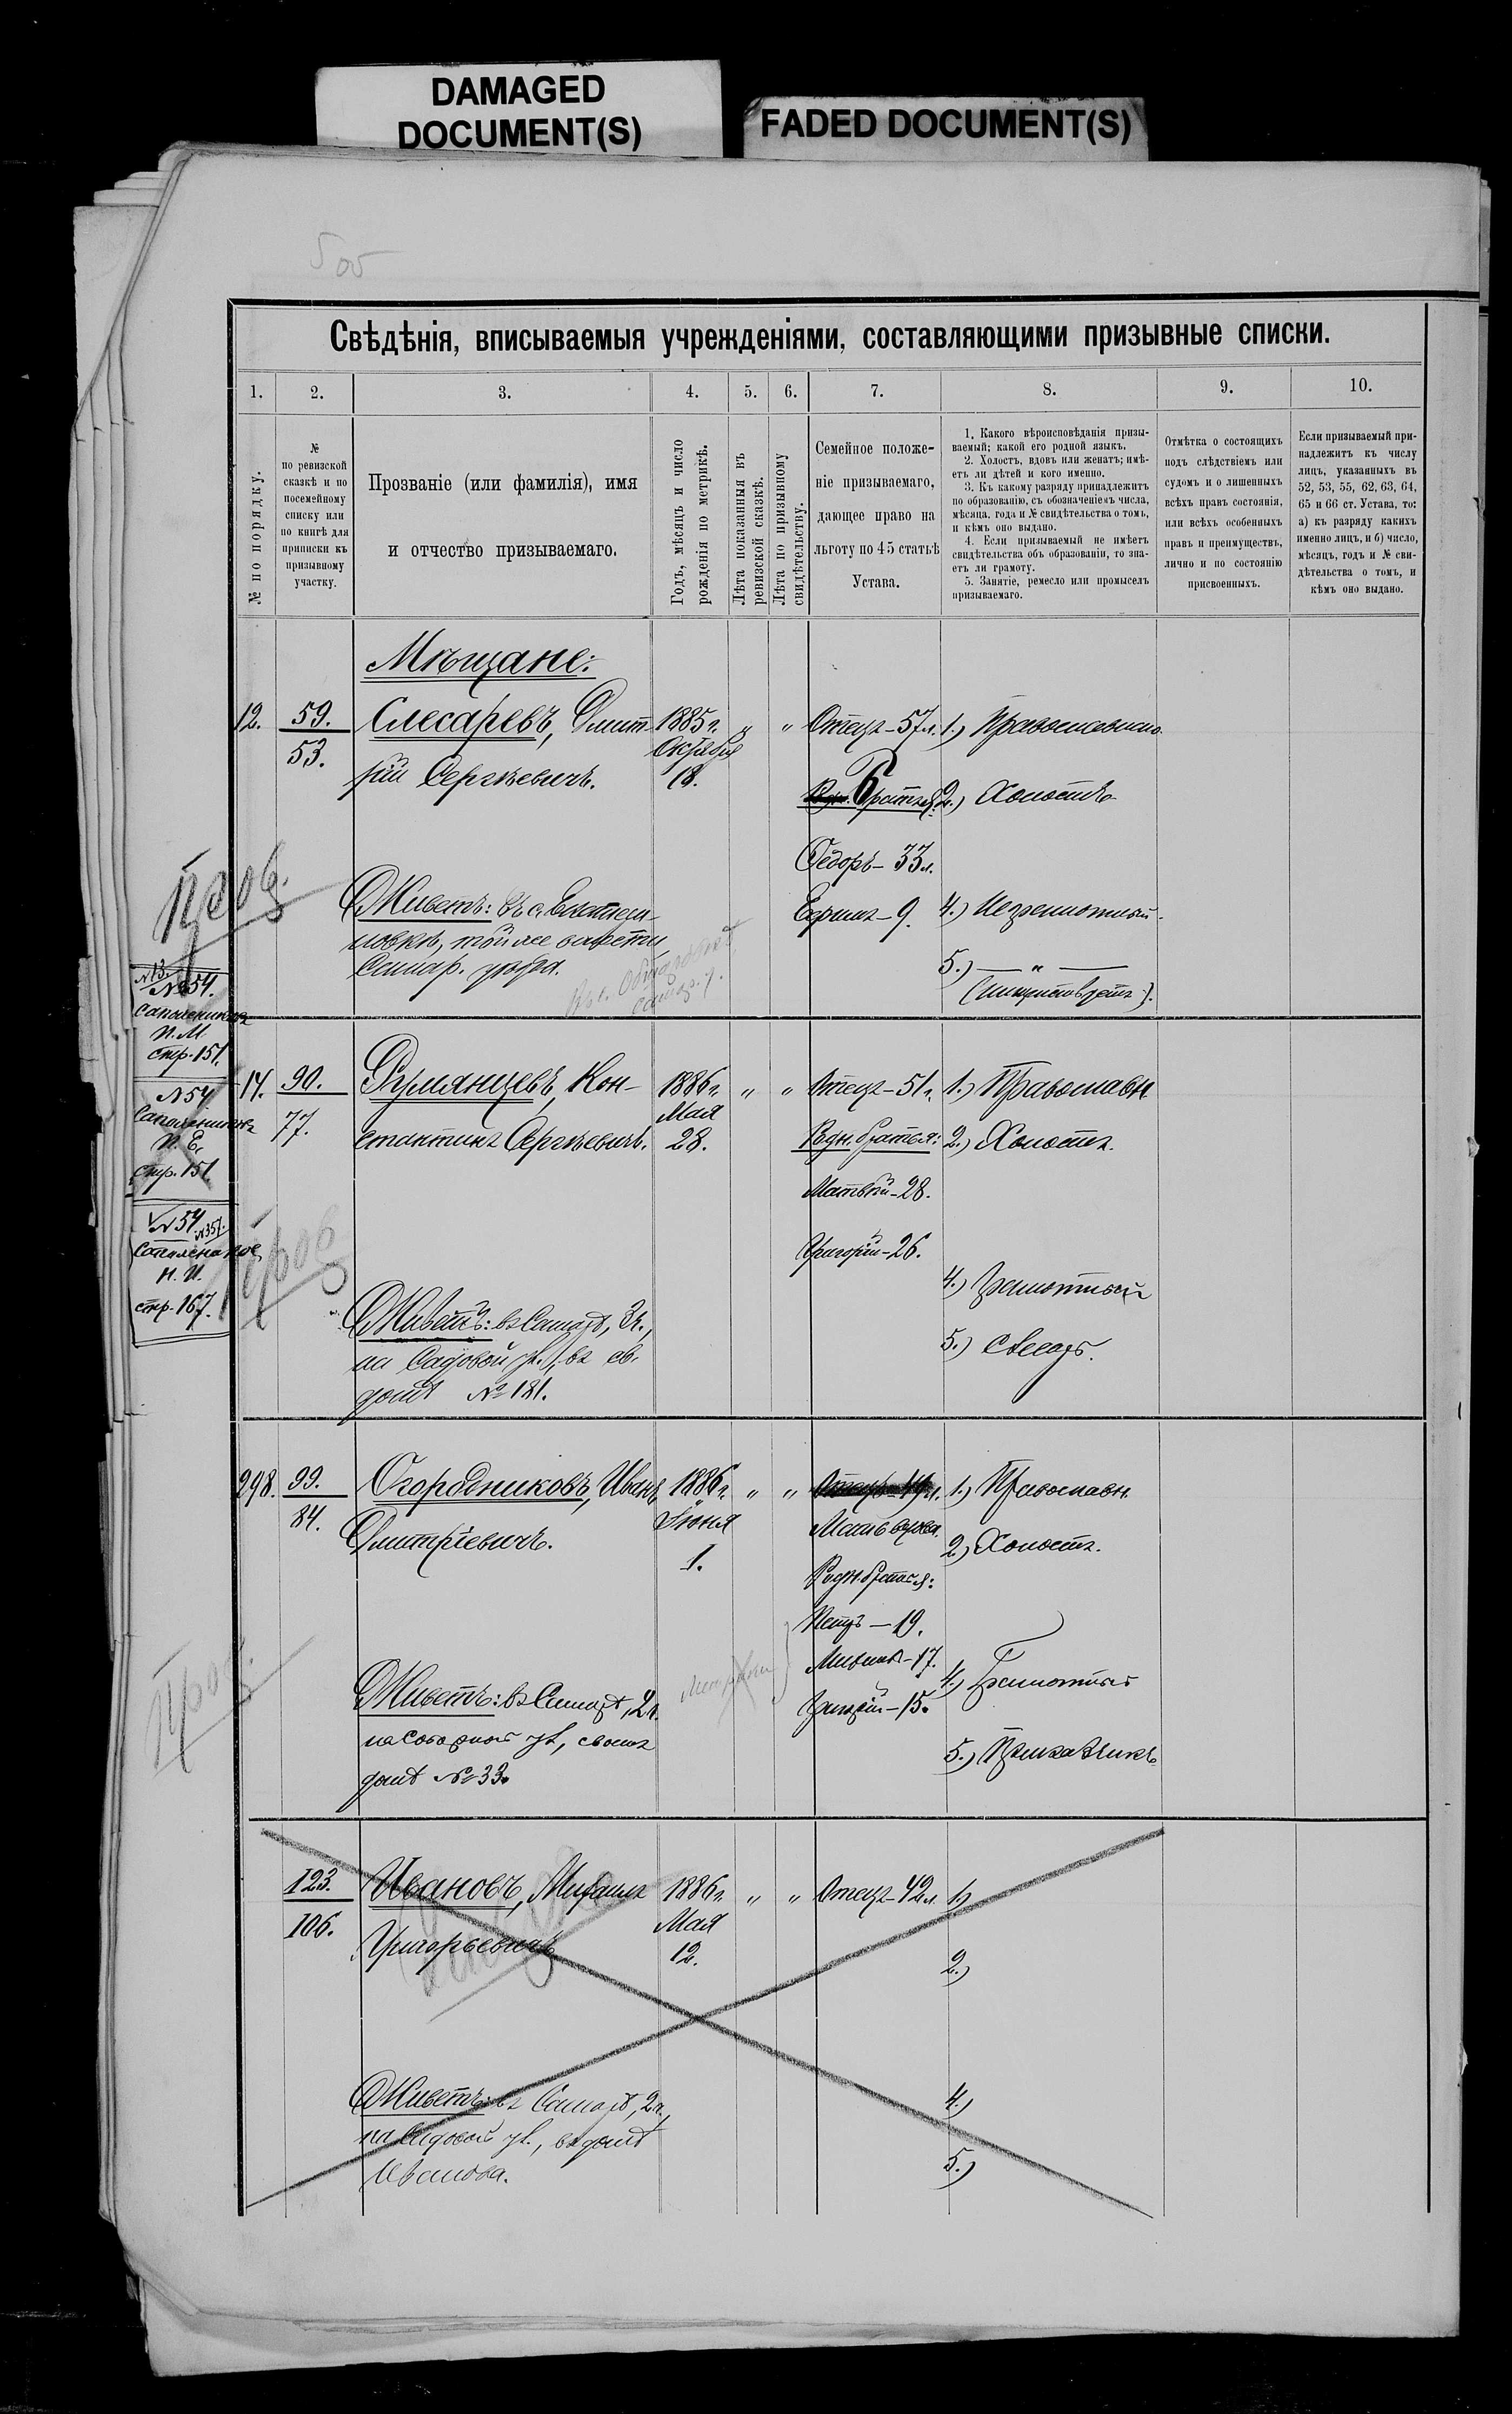 DAMAGED
DOCUMENT(S)
FADED DOCUMENT(S)
505
Свѣдѣнія, вписываемыя учрежденіями, составляющими призывные списки.
1.
2.
3.
4.
5.
6.
7.
8.
9.
10.
№ по порядку.
№
по ревизской
сказкѣ и по
посемейному
списку или
по книгѣ для
приписки къ
призывному
участку.
Прозваніе (или фамилія), имя
и отчество призываемаго.
Годъ, мѣсяцъ и число
рожденія по метрикѣ.
Лѣта показанныя въ
ревизской сказкѣ.
Лѣта по призывному
свидѣтельству.
Семейное положе-
ніе призываемаго,
дающее право на
льготу по 45 статьѣ
Устава.
1. Какого вѣроисповѣданія призы-
ваемый; какой его родной языкъ.
2. Холостъ, вдовъ или женатъ; имѣ-
етъ ли дѣтей и кого именно.
3. Къ какому разряду принадлежитъ
по образованію, съ обозначеніемъ числа,
мѣсяца, года и № свидѣтельства о томъ,
и кѣмъ оно выдано.
4. Если призываемый не имѣетъ
свидѣтельства объ образованіи, то зна-
етъ ли грамоту.
5. Занятіе, ремесло или промыселъ
призываемаго.
Отмѣтка о состоящихъ
подъ слѣдствіемъ или
судомъ и о лишенныхъ
всѣхъ правъ состоянія,
или всѣхъ особенныхъ
правъ и преимуществъ,
лично и по состоянію
присвоенныхъ.
Если призываемый при-
надлежитъ къ числу
лицъ, указанныхъ въ
52, 53, 55, 62, 63, 64,
65 и 66 ст. Устава, то:
а) къ разряду какихъ
именно лицъ, и б) число,
мѣсяцъ, годъ и № сви-
дѣтельства о томъ, и
кѣмъ оно выдано.
Мѣщане:
12.
59.
53.
Слесаревъ, Дмит-
рій Сергѣевичъ.
1885 г.
Октября
18.
" "
Отецъ - 57 л.
братья:
Ѳедоръ - 33 л.
9.
1.) Православно
2.) Холостъ
4.) Неграмотный
5.) — " —
Живетъ: въ с. Екатери-
новкѣ, той же волости
Самар. уѣзда.
Пров.
№ 13.
№ 54.
П. М.
стр. 151.
№ 54
П. Е.
стр. 151.
№ 54. № 357.
Н. И.
стр. 167.
14.
90.
77.
Румянцевъ, Кон-
стантинъ Сергѣевичъ.
1886 г.
Мая
28.
" "
Отецъ - 51 г.
Родн. братья:
Матвѣй - 28.
Григорій - 26.
1.) Православн.
2.) Холостъ.
4.) Грамотный
5.) Слесарь.
Пров
Живетъ: въ Самарѣ, 3 ч.,
на Садовой ул., въ св.
домѣ № 181.
298.
99.
84.
Огородниковъ, Иванъ
Дмитріевичъ.
1886 г.
Іюня
1.
" "
Отецъ - 49 л.
Мать вдова.
Родн. братья:
Петръ — 19.
17.
Григорій - 15.
1.) Православн.
2.) Холостъ.
4.) Грамотный
5.) Приказчикъ.
Пров.
Живетъ: въ Самарѣ, 2 ч.
на Соборной ул., своемъ
домѣ № 33.
123.
106.
Ивановъ, Михаилъ
Григорьевичъ
1886 г.
Мая
12.
" "
Отецъ - 42 л.
1.)
2.)
4.)
5.)
Живетъ: въ Самарѣ, 2 ч.,
на Садовой ул., въ домѣ
Иванова.